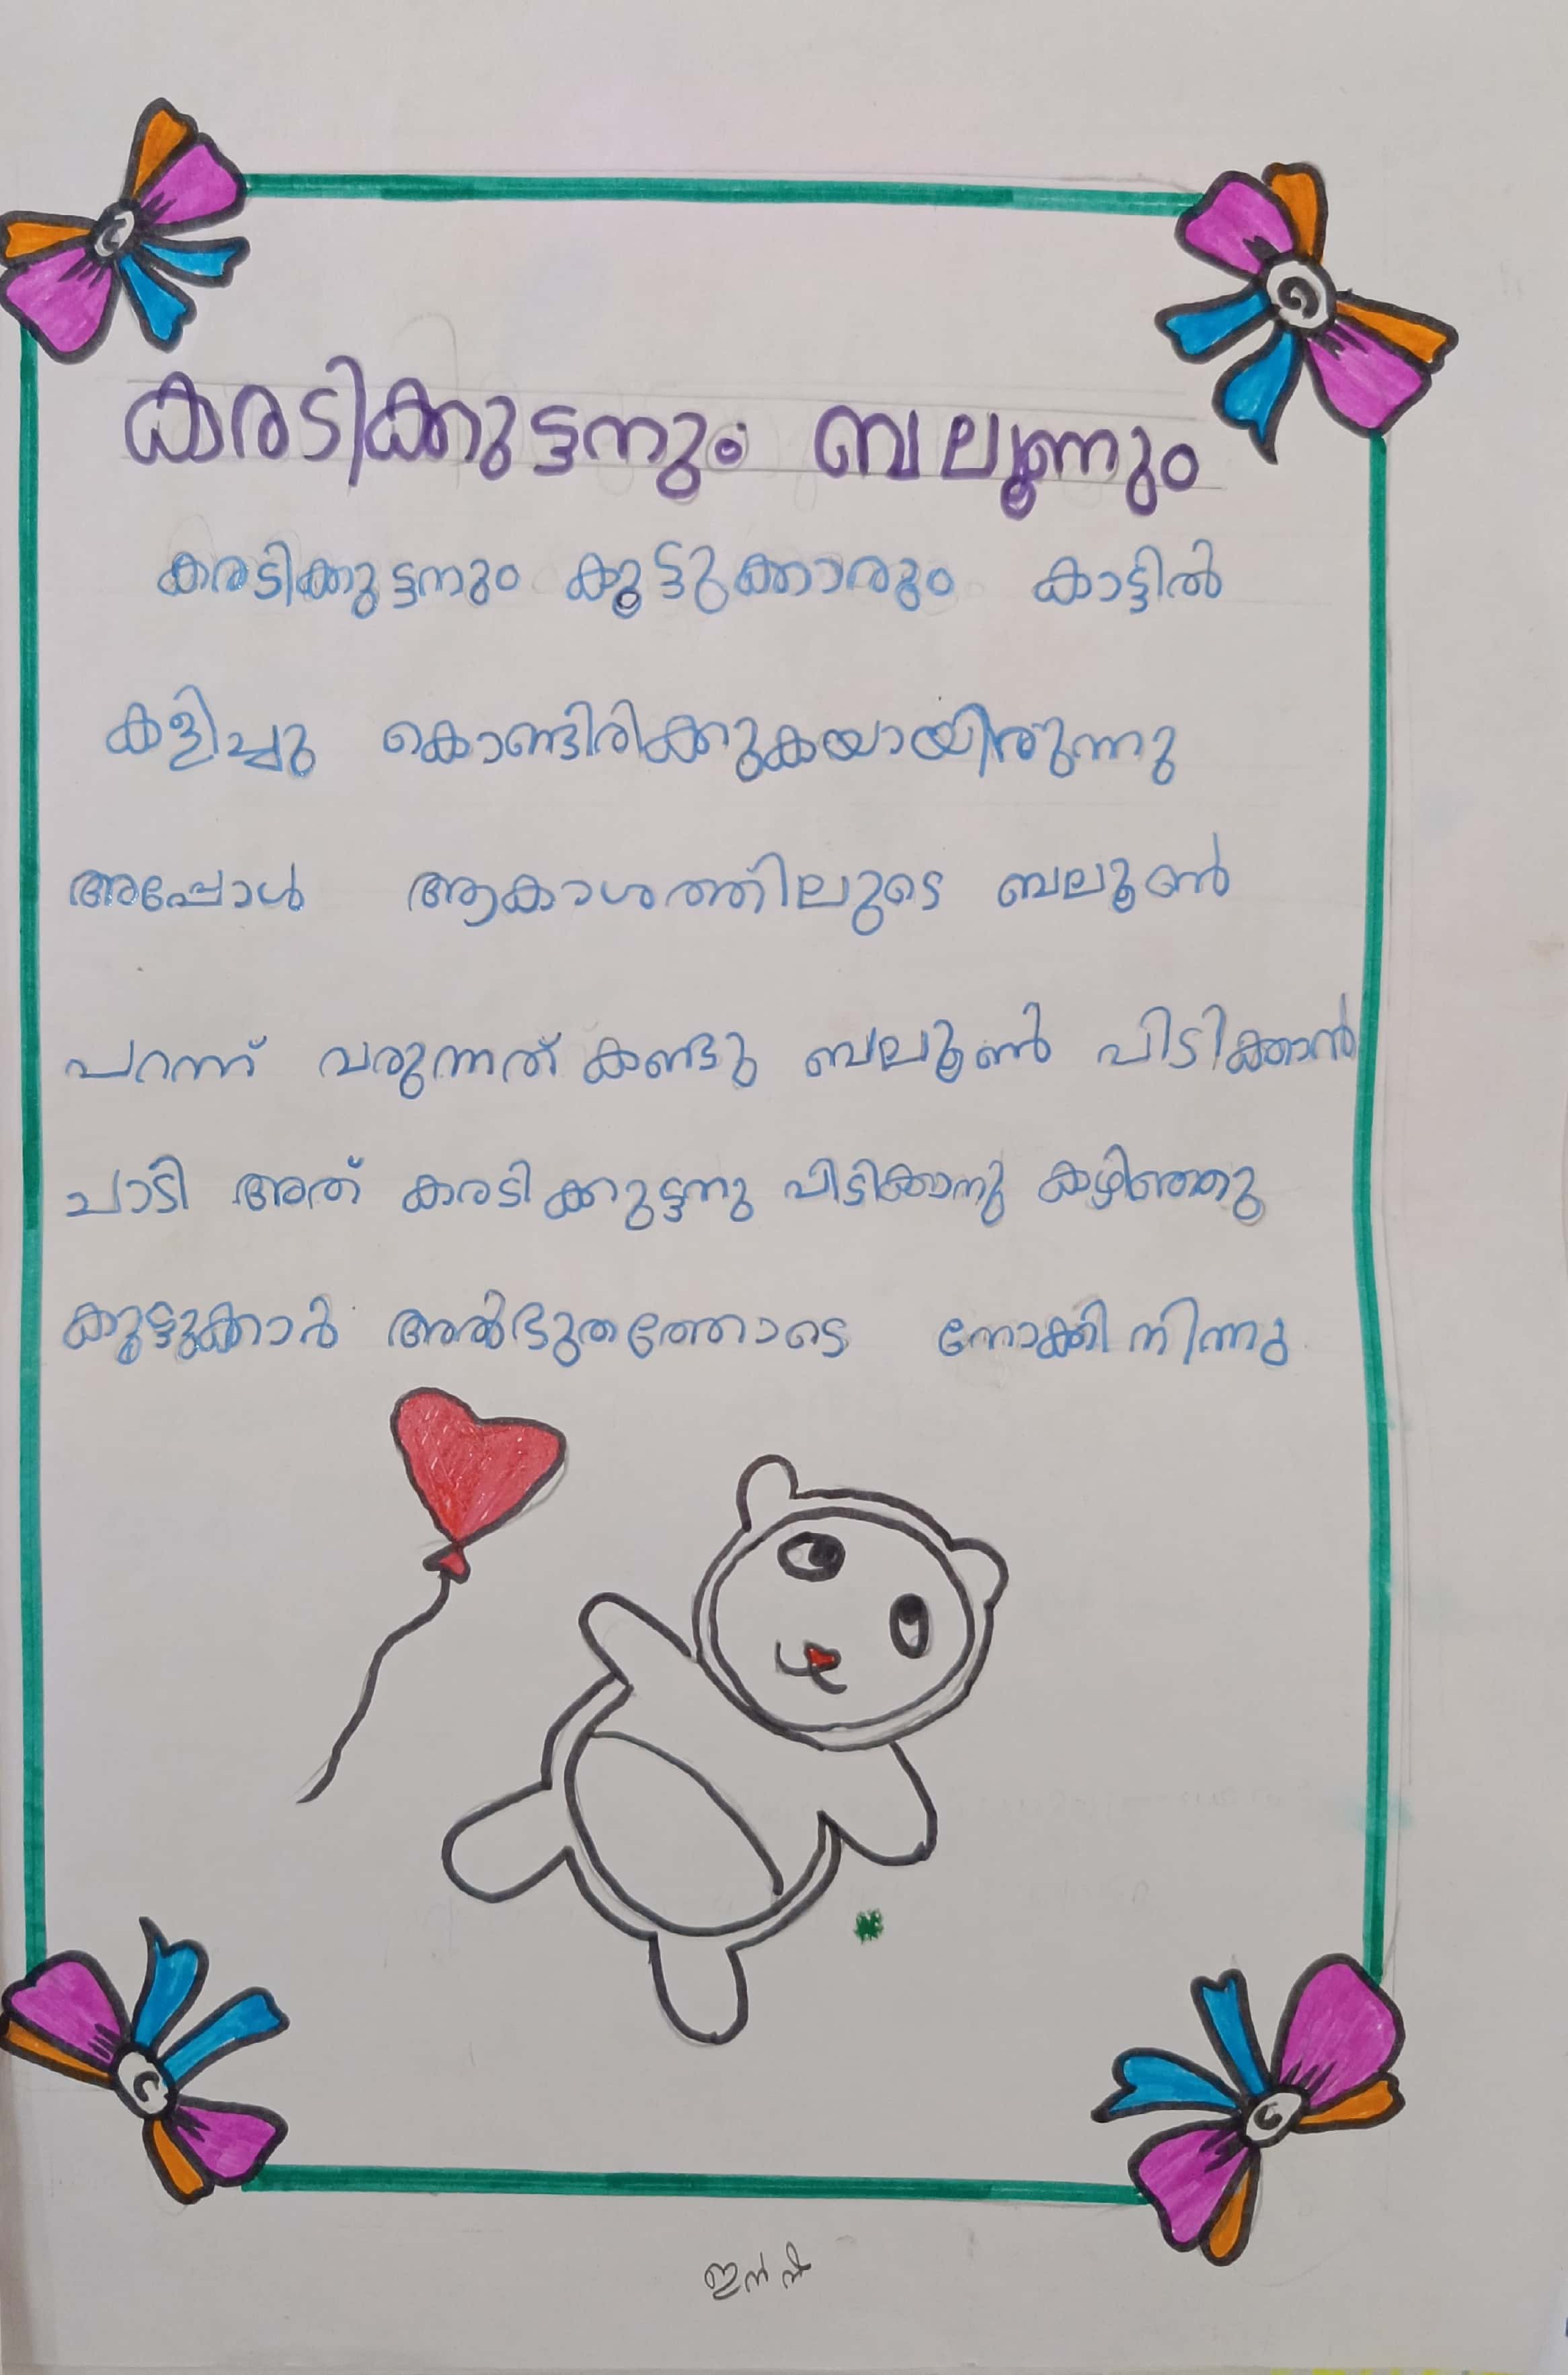 കരടിക്കുട്ടനും ബലൂണും
കരടിക്കുട്ടനും കൂട്ടുക്കാരും കാട്ടിൽ
കളിച്ചു കൊണ്ടിരിക്കുകയായിരുന്നു
അപ്പോൾ ആകാശത്തിലുടെ ബലൂൺ
പറന്ന് വരുന്നത് കണ്ടു ബലൂൺ പിടിക്കാൻ
ചാടി അത് കരടിക്കുട്ടനു പിടിക്കാനു കഴിഞ്ഞു
കൂട്ടുക്കാർ അൽഭുതത്തോടെ നോക്കി നിന്നു